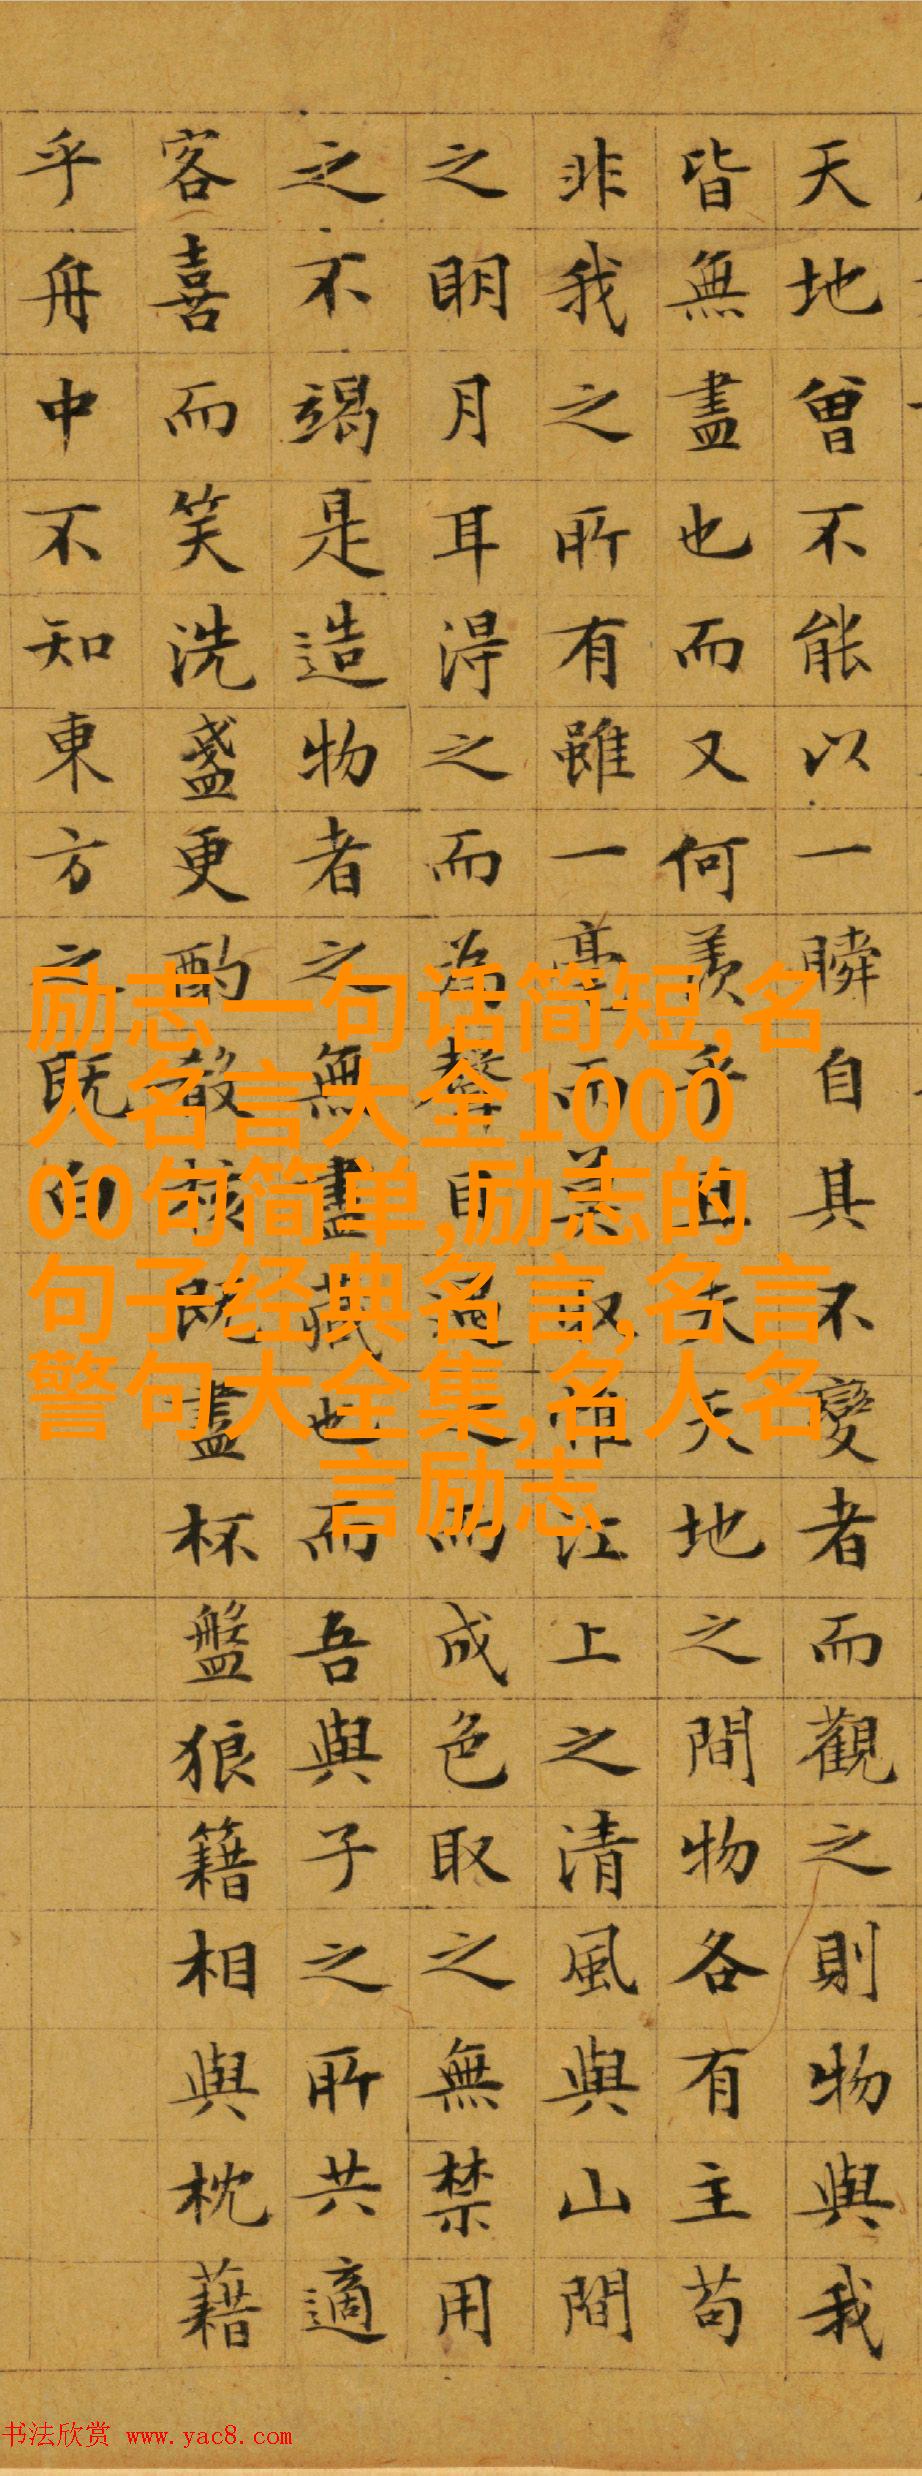 天地曾不能以一瞬自其不變者而觀之則物與我
皆無盡也而又何羨乎且夫天地之間物各有主苟
非我之所有雖一毫而莫取惟江上之清風與山間
之明月耳得之而為聲目遇之而成色取之無禁用
之不竭是造物者之無盡藏也而吾與子之所共適
客喜而笑洗盞更酌殽核既盡杯盤狼籍相與枕藉
乎舟中不知東方之既白
励志一句话简短,名
人名言大全1000
00句简单,励志的
句子经典名言,名言
警句大全集,名人名
言励志
书法欣赏 www.yac8.com